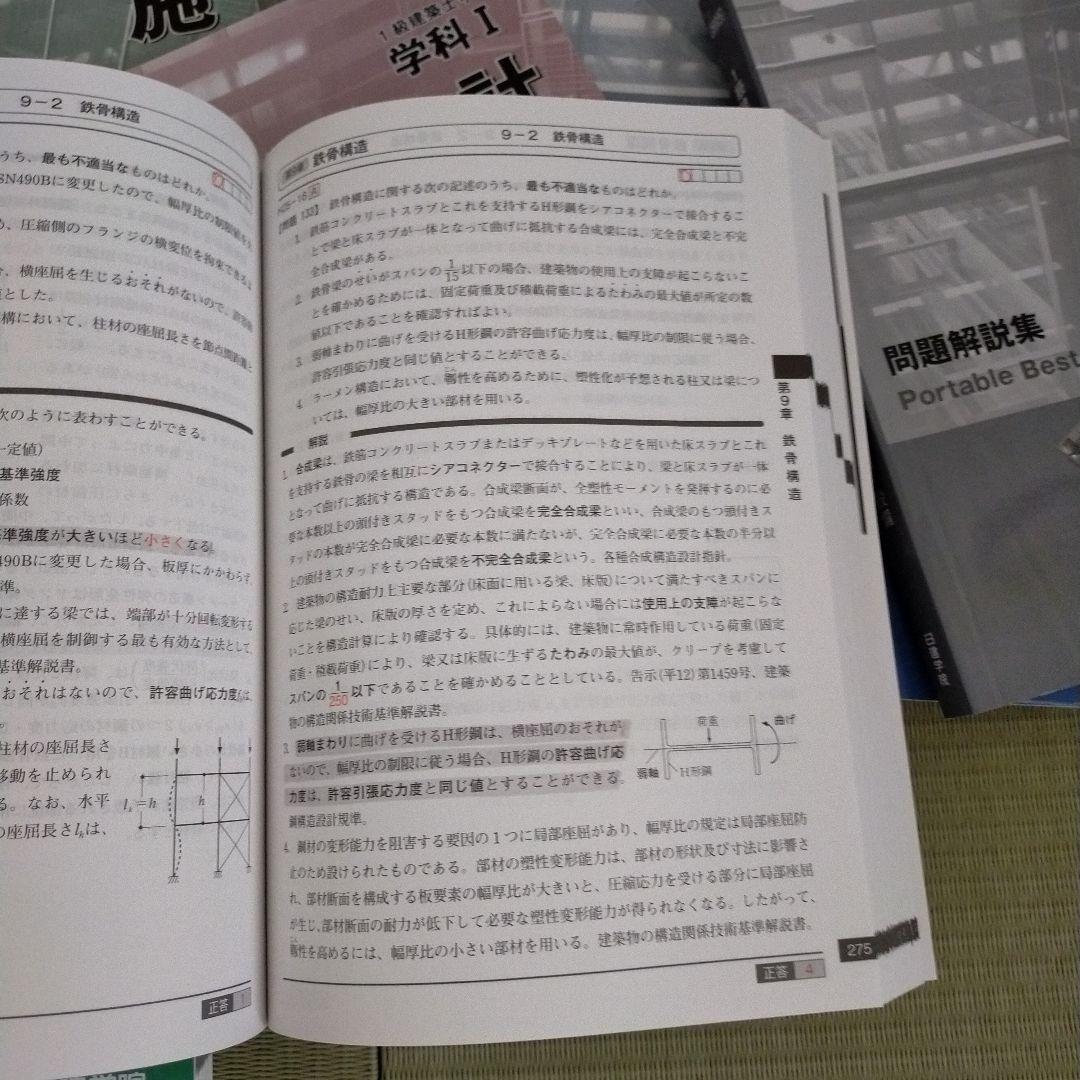 施
1級建築士
学科 I
計
問題解説集
Portable Best
日建学院
9-2 鉄骨構造
うち、最も不適当なものはどれか。
SN490Bに変更したので、幅厚比の制限値を
め、圧縮側のフランジの横変位を拘束できる
、横座屈を生じるおそれがないので、許容
値とした。
構において、柱材の座屈長さを節点間距離と
次のように表わすことができる。
一定値)
基準強度
係数
基準強度が大きいほど小さくなる。
490Bに変更した場合、板厚にかかわらず、
準。
に達する梁では、端部が十分回転変形する
横座屈を制御する最も有効な方法として、
基準解説書。
おそれはないので、許容曲げ応力度fbは、
。
柱材の座屈長さ
移動を止められ
る。なお、水平
の座屈長さlkは、
lk=h
h
正答 1
第9章 鉄骨構造
9-2 鉄骨構造
H25-16 A
【問題 133】 鉄骨構造に関する次の記述のうち、最も不適当なものはどれか。
1. 鉄筋コンクリートスラブとこれを支持するH形鋼をシアコネクターで接合するこ
とで梁と床スラブが一体となって曲げに抵抗する合成梁には、完全合成梁と不完
全合成梁がある。
2. 鉄骨梁のせいがスパンの1/15以下の場合、建築物の使用上の支障が起こらないこ
とを確かめるためには、固定荷重及び積載荷重によるたわみの最大値が所定の数
値以下であることを確認すればよい。
3. 弱軸まわりに曲げを受けるH形鋼の許容曲げ応力度は、幅厚比の制限に従う場合、
許容引張応力度と同じ値とすることができる。
4. ラーメン構造において、靱性を高めるために、塑性化が予想される柱又は梁につ
いては、幅厚比の大きい部材を用いる。
解説
1. 合成梁は、鉄筋コンクリートスラブまたはデッキプレートなどを用いた床スラブとこれ
を支持する鉄骨の梁を相互にシアコネクターで接合することにより、梁と床スラブが一体
となって曲げに抵抗する構造である。合成梁断面が、全塑性モーメントを発揮するのに必
要な本数以上の頭付きスタッドをもつ合成梁を完全合成梁といい、合成梁のもつ頭付きス
タッドの本数が完全合成梁に必要な本数に満たないが、完全合成梁に必要な本数の半分以
上の頭付きスタッドをもつ合成梁を不完全合成梁という。各種合成構造設計指針。
2. 建築物の構造耐力上主要な部分(床面に用いる梁、床版)について満たすべきスパンに
応じた梁のせい、床版の厚さを定め、これによらない場合には使用上の支障が起こらな
いことを構造計算により確認する。具体的には、建築物に常時作用している荷重(固定
荷重・積載荷重)により、梁又は床版に生ずるたわみの最大値が、クリープを考慮して
スパンの1/250以下であることを確かめることとしている。告示(平12)第1459号、建築
物の構造関係技術基準解説書。
3. 弱軸まわりに曲げを受けるH形鋼は、横座屈のおそれが
ないので、幅厚比の制限に従う場合、H形鋼の許容曲げ応
力度は、許容引張応力度と同じ値とすることができる。
鋼構造設計規準。
荷重
曲げ
弱軸
H形鋼
4. 鋼材の変形能力を阻害する要因の1つに局部座屈があり、幅厚比の規定は局部座屈防
止のため設けられたものである。部材の塑性変形能力は、部材の形状及び寸法に影響さ
れ、部材断面を構成する板要素の幅厚比が大きいと、圧縮応力を受ける部分に局部座屈
が生じ、部材断面の耐力が低下して必要な塑性変形能力が得られなくなる。したがって、
靱性を高めるには、幅厚比の小さい部材を用いる。建築物の構造関係技術基準解説書。
正答 4
第9章 鉄骨構造
275